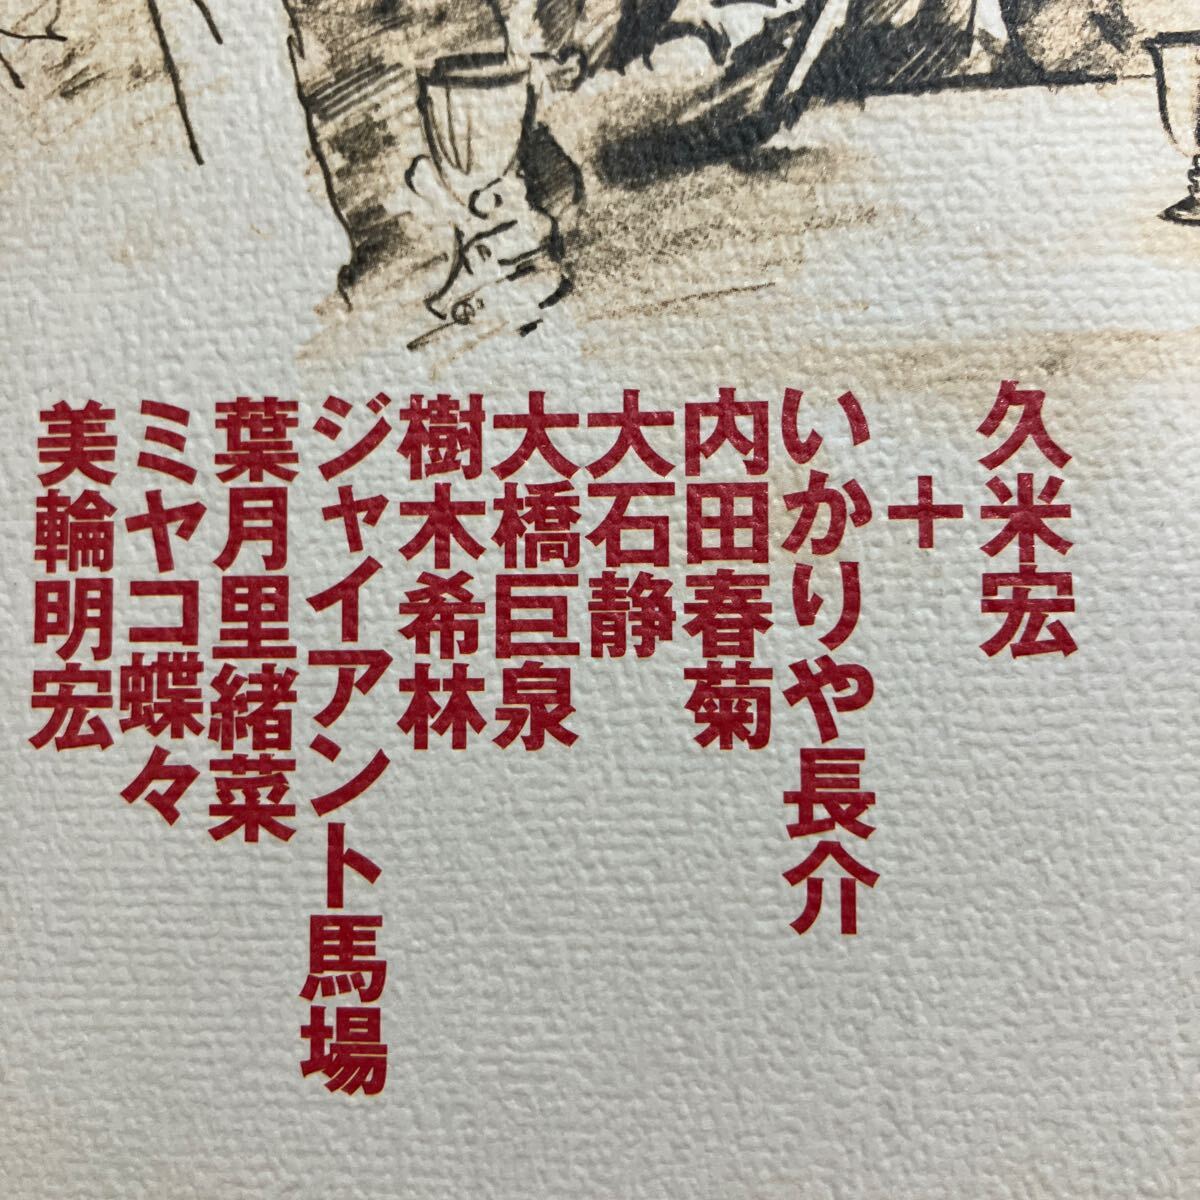 久米宏
+
いかりや長介
内田春菊
大石静
大橋巨泉
樹木希林
ジャイアント馬場
葉月里緒菜
ミヤコ蝶々
美輪明宏